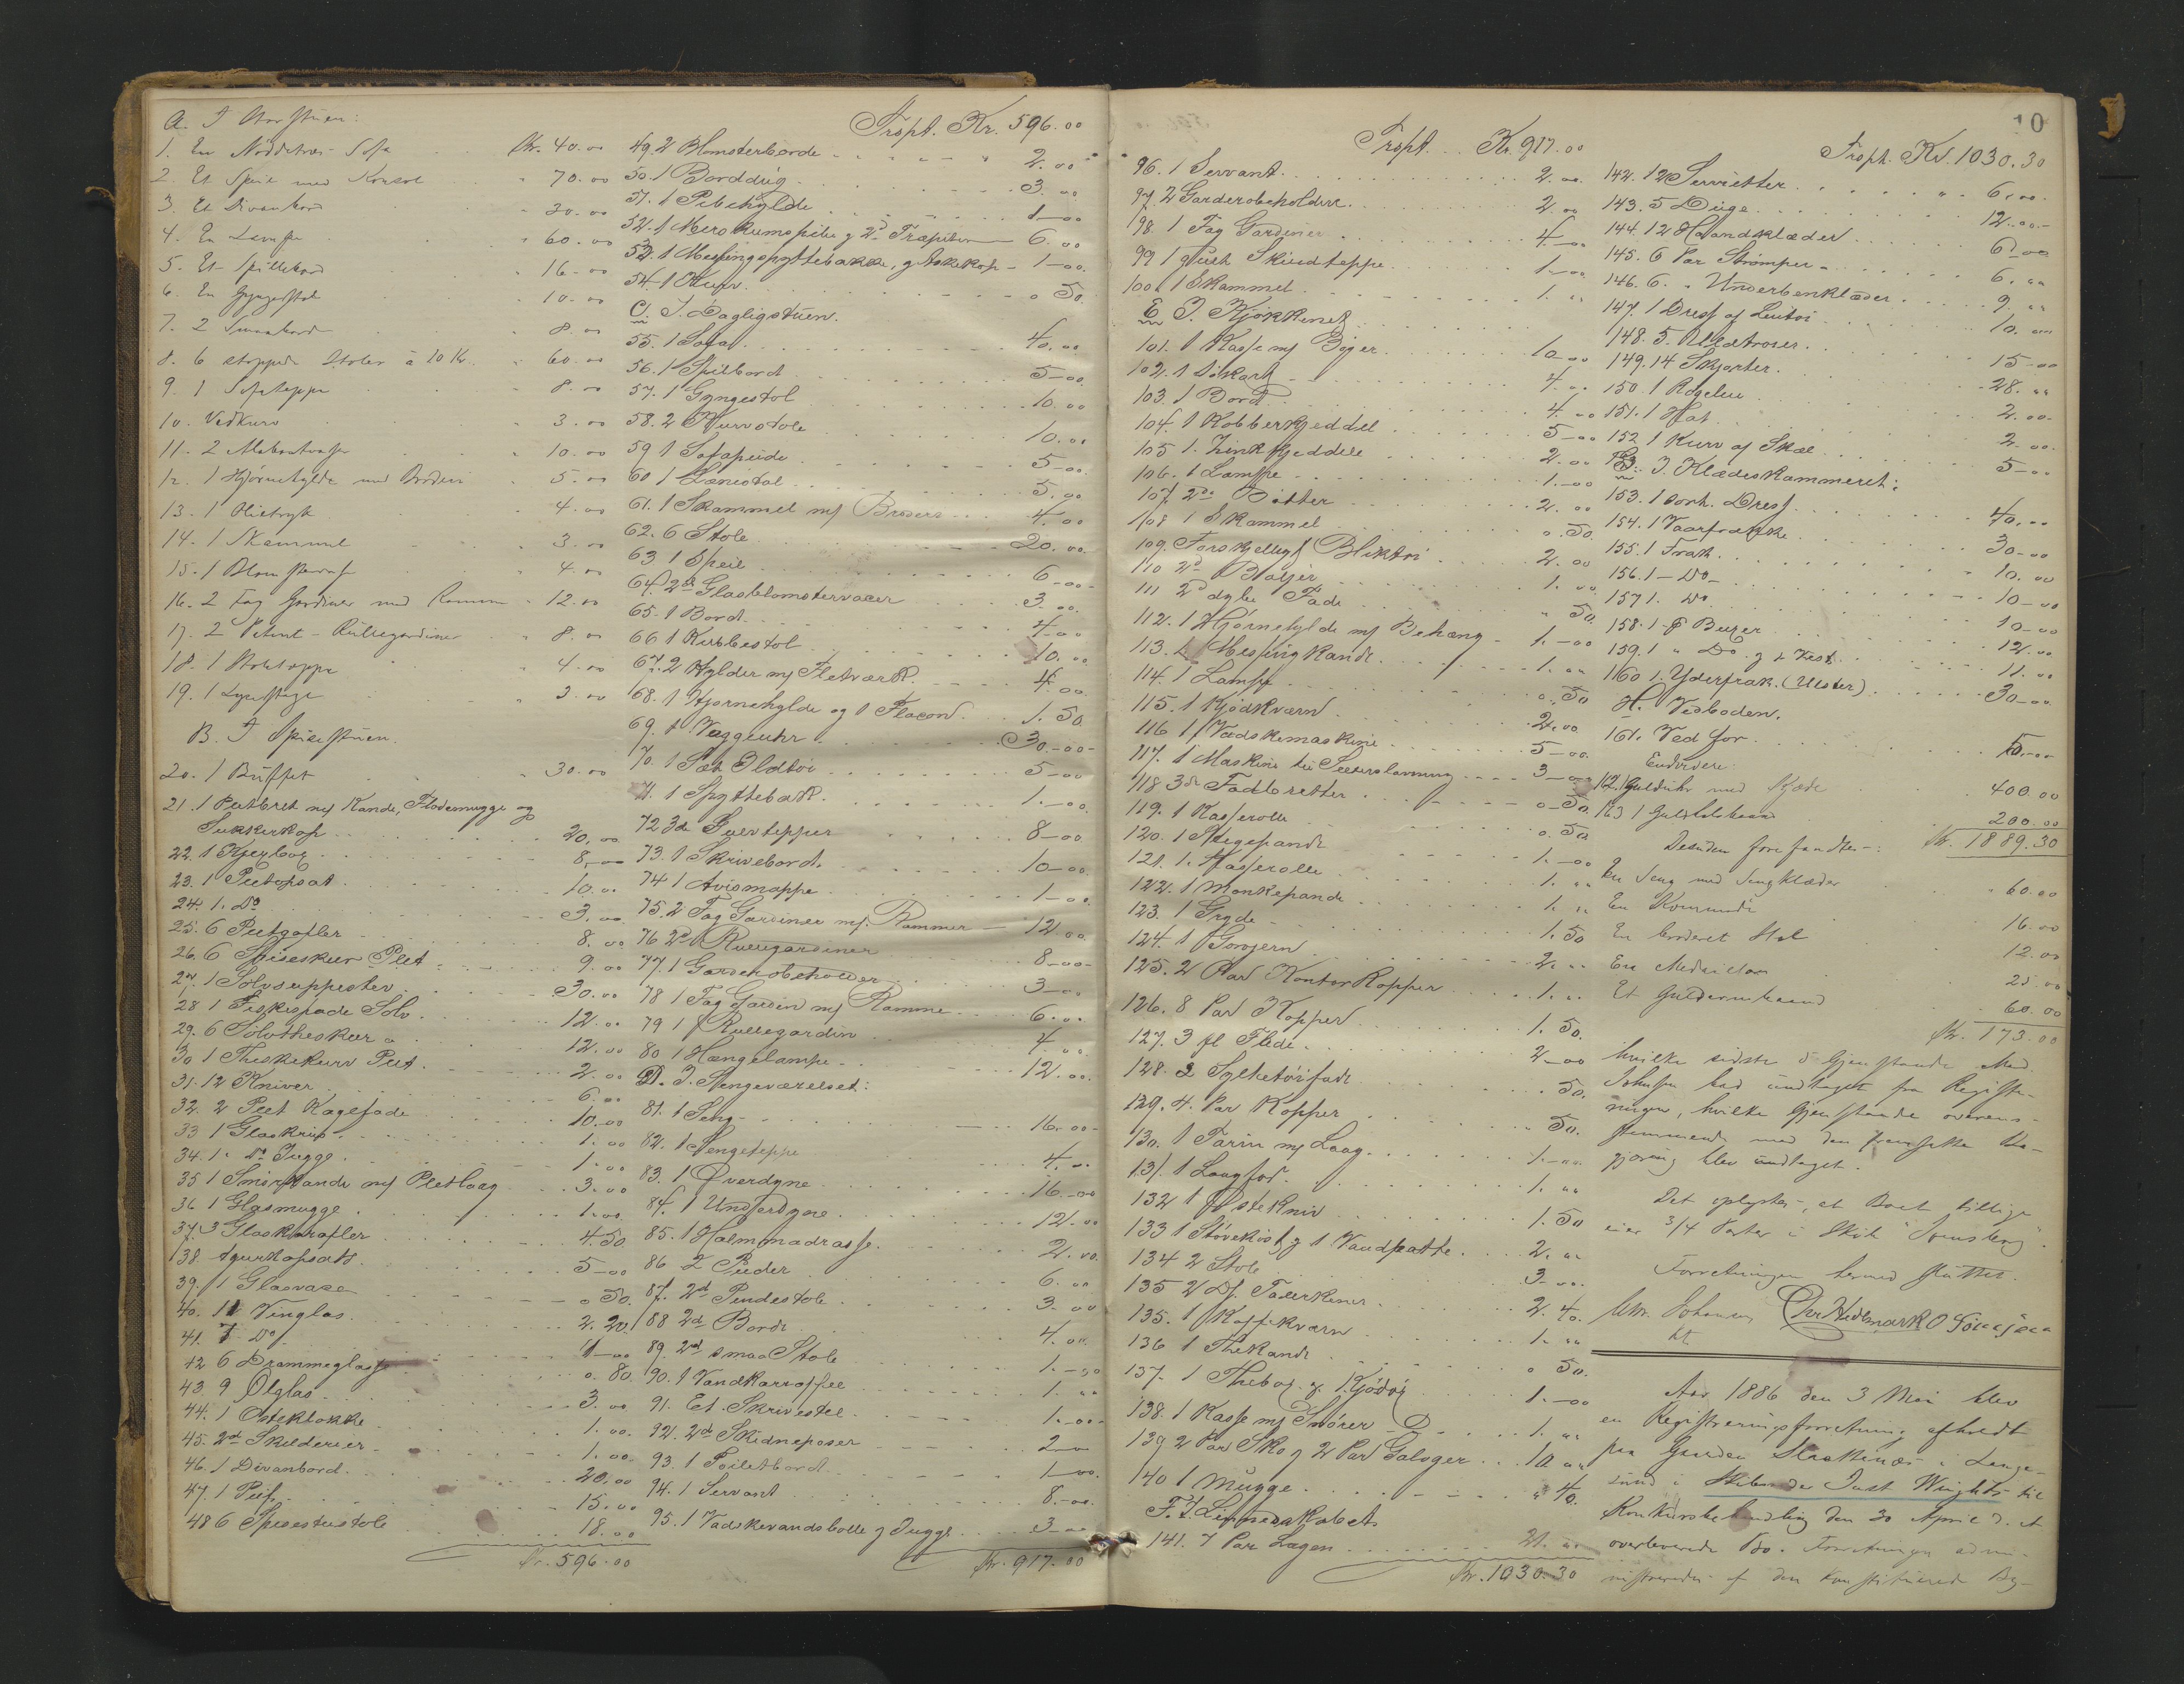 A. I Storstuen:
1. En Nøddetræs Sofa Kr. 40.00
2. Et Speil med Konsol 70.00
3. Et Divanbord 30.00
4. En Lampe 60.00
5. Et Spillebord 16.00
6. En Gyngestol 10.00
7. 2 Smaabord 8.00
8. 6 stoppede Stoler à 10 Kr. 60.00
9. 1 Sofateppe 8.00
10. Vedkurv 3.00
11. 2 Alabastvaser 10.00
12. 1 Hjørnehylde med Broderi 5.00
13. 1 Olietryk 4.00
14. 1 Skammel 3.00
15. 1 Blomstervase 4.00
16. 2 Fag Gardiner med Rammer 12.00
17. 2 Patent-Rullegardiner 8.00
18. 1 Stolteppe 4.00
19. 1 Lysestage 3.00
B. I Spisestuen.
20. 1 Buffet 30.00
21. 1 Pletbret m/ Kande, Flødemugge og
Sukkerkop 20.00
22. 1 Kjexbox 8.00
23. 1 Pletopsat 10.00
24. 1. Do 3.00
25. 6 Pletgafler 8.00
26. 6 Spiseskeer Plet 9.00
27. 1 Sølvsuppeslev 30.00
28 1 Fiskespade Sølv 12.00
29. 6 Sølvtheskeer 12.00
30 1 Theskekurv Plet 2.00
31. 12 Kniver 6.00
32. 2 Plet Kagefade 10.00
33 1 Glaskrus 1.00
34. 1. do Jugge 1.00
35 1 Smørkande m/ Pletlaag 3.00
36 1 Glasmugge 1.00
37. 3 Glaskarafler 4.50
38. Agurkopsats 5.00
39. 1 Glasvase 0.50
40. 11 Vinglas 2.20
41. 7 Do 1.00
42 6 Drammeglasse 0.80
43. 9 Ølglas 3.00
44. 1 Osteklokke 1.00
45. 2de Skilderier 1.00
46. 1 Divanbord 20.00
47. 1 Peis 15.00
48 6 Spisestuestole 18.00
Kr. 596.00
Trspt. Kr. 596.00
49. 2 Blomsterborde 2.00
50. 1 Borddug 3.00
51. 1 Pibehylde 1.00
52. 1 Merskumspibe og 2d Træpiber 6.00
53. 1 Messingspyttebakke, og Askekop 1.00
54. 1 Kurv 0 50
C. I Dagligstuen.
55. 1 Sofa 40.00
56. 1 Spilbord 5.00
57. 1 Gyngestol 10.00
58. 2 Kurvstole 10.00
59 1 Sofapude 5.00
60 1 Lænestol 5.00
61. 1 Skammel m/ Broderi 4.00
62. 6 Stole 20.00
63 1 Speil 6.00
64. 2de Glasblomstervaser 3.00
65. 1 Bord 4.00
66 1 Kubbestol 10.00
67. 2 Hylder m/ Fletværk 4.00
68. 1 Hjørnehylde og 1 Flacon 1.50
69. 1 Væggeuhr 30.00
70. 1 Sæt Ildtøi 5.00
71. 1 Spyttebak 1.00
72 3de Gulvtepper 8.00
73. 1 Skrivebord 10.00
74 1 Avismappe 1.00
75. 2 Fag Gardiner m/ Rammer 12.00
76 2d Rullegardiner 8.00
77. 1 Garderobeholder 3.00
78 1 Fag Gardin m/ Ramme 6.00
79 1 Rullegardin 4.00
80 1 Hængelampe 12.00
D. I Sengeværelset:
81. 1 Seng 16.00
82. 1 Sengeteppe 4.00
83. 1 Overdyne 16.00
84. 1 Underdyne 12.00
85. 1 Halmmadrasse 2.00
86 2 Puder 6.00
87. 2d Pindestole 3.00
88 2d Borde 4.00
89. 2d smaa Stole 1.50
90. 1 Vandkarroffel 1.00
91. Et Skrivestel 1.00
92. 2d Skidneposer 2.00
93. 1 Toiletbord 1.00
94. 1 Servant 8.00
95. 1 Vaskevandsbolle og Jugge 3.00
Kr. 917.00
10
Trspt. Kr. 917.00
96. 1 Servant 2.00
97. 2 Garderobeholdere 2.00
98. 1 Fag Gardiner 4.00
99 1 Skindteppe 1.00
100. 1 Skammel 1.00
E. I Kjøkkenet
101. 1 Kasse m/ Bøger 10.00
102. 1 Diskart 4.00
103. 1 Bord 4.00
104. 1 Kobberkjeddel 5.00
105 1. Zinkkjeddele 2.00
106. 1 Lampe 1.00
107. 2de Bøtter 2.00
108 1 Skammel 0.50
109. Forskjelligt Bliktøi 2.00
110 2d Baljer 1.00
111 2d dybe Fade 50
112. 1 Hjørnehylde m/ Behæng 1.00
113. 1 Messingkande 1.00
114. 1 Lampe 0.50
115. 1 Kjødkværn 2.00
116 1 Vadskemaskine 5.00
117. 1 Maskine til 3.00
118 3de Fadbretter 0.50
119. 1 Kasserolle 0.50
120. 1 Stegepande 1.00
121. 1. Kasserolle 1.
122. 1 Monkepande 1.
123. 1 Gryde 1.50
124. 1 Gorojern 2.
125. 2 Par Kontor Kopper 1.
126. 8 Par Kopper 1.50
127. 3 fl Fløde 2.00
128. 2 Syltetøifade 50.
129. 4. Par Kopper 50.
130. 1 Tærin m/ Laag 1.
131. 1 Laagfad 1.
132 1 Osteknive 1.50
133 1 Støvekost og 1 Vandpøtte 2.
134 2 Stole 3.00
135 2 Ds. Tallerkener 2.40
135. 1 Kaffekværn 1.
136 1 Thekande 0 50.
137. 1 Thebox og 1. 1.00
138. 1 Kasse m/ Snører 1.
139 2 Par Sko og 2 Par Galoger 10.
140 1 Mugge 40.
F. I Linnedskabet
141. 7 Par Lagen 21.
Kr. 1030.30
Trspt. Kr. 1030.30
142. 12 Servietter 6.00
143. 5 Duge 12.00
144. 12 Haandklæder 6.00
145. 6 Par Strømper 6.
146. 6. " Underbenklæder 9.
147. 1 Dress af Lintøi 10.
148. 5. Uldtrøier 15.00
149. 14 Skjorter 28.
150 1 2.00
151. 1 Hat 2.00
152 1 Kurv af Skæl 5.00
G. I Klædeskammeret:
153. 1 sort Dress 40.00
154. 1 Vaarfrakke 30.00
155. 1 Frak 10.00
156. 1 - Do - 10.00
157 1. Do 10.00
158. 1 p Buxer 12.00
159. 1 " Do og 2 Vest 11.00
160 1. Yderfrak. (Ulster) 30.00
H. Vedboden.
161. Ved for 50.00
Endvidere:
162. 1 Guldur med Kjæde 400.00
163 1 Guldlokaand 200.00
Kr. 1889.30
Desuden forefandtes:
En Seng med Sengklæder 60.00
En Kommode 16.00
En broderet Stol 12.00
En Medaillon 25.00
Et Guldarmbaand 60.00
Kr. 173.00
hvilke sidste 5 Gjenstande Mad.
Johnsen bad undtaget fra Registre-
ringen, hvilke Gjenstande overens-
stemmende med den fremsatte Be-
gjæring blev undtaget.
Det oplystes, at Boet tillige
eier 3/4 Parter i Skib "Tønsberg".
Forretningen hermed sluttet.
Chr. Johansen Chr Hedemark O Tønnesen
kt
Aar 1886 den 3 Mai blev
en Registreringsforretning afholdt
paa Gaarden i Lange-
sund i Skibsreder Just Wrights til
Konkursbehandling den 30 April d. A
overleverede Bo. Forretningen admi-
nistreredes af den konstituerede By-